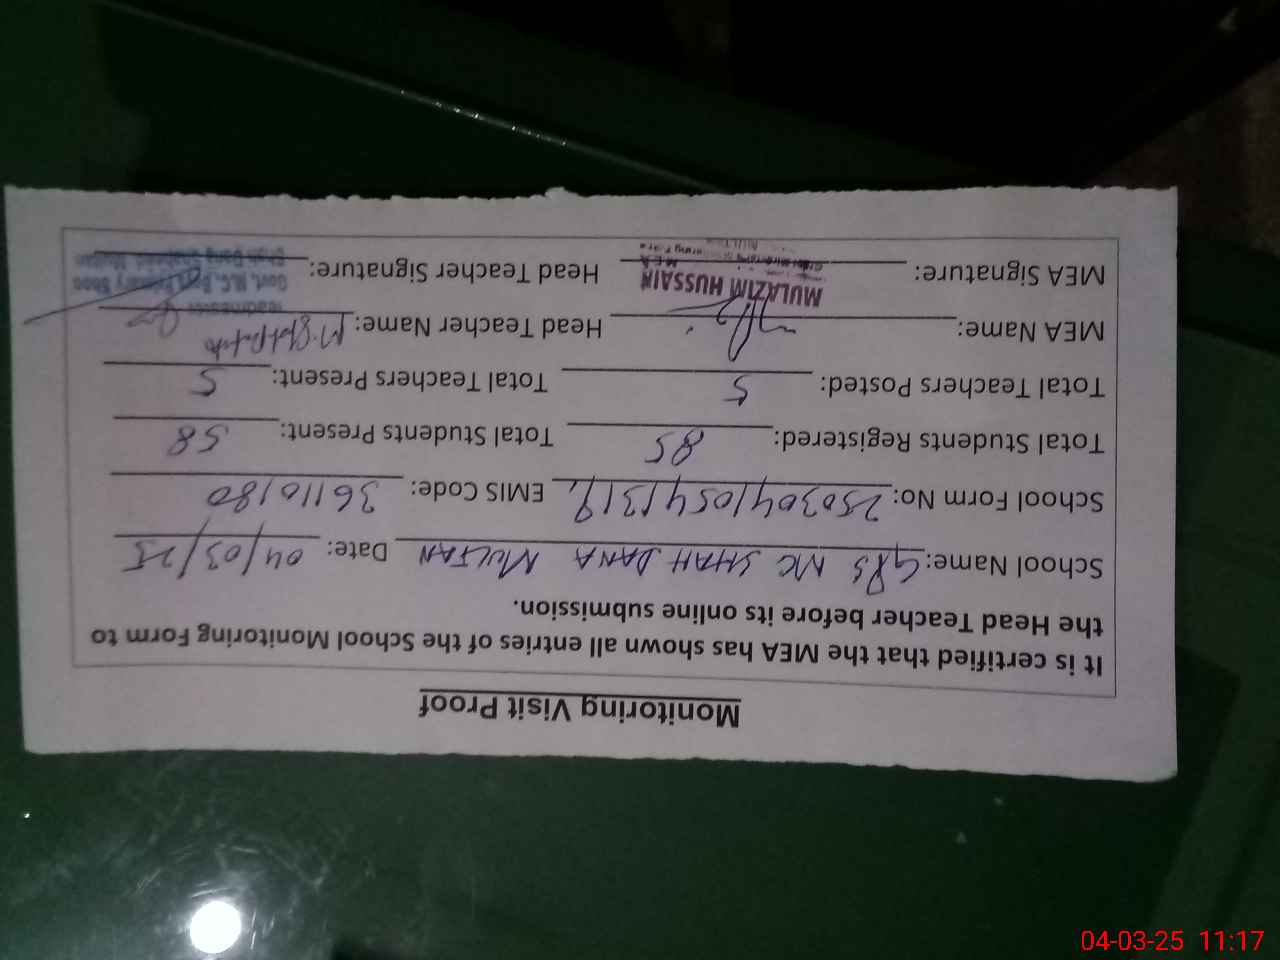 Monitoring Visit Proof
It is certified that the MEA has shown all entries of the School Monitoring Form to
the Head Teacher before its online submission.
School Name: GPS MC SHAH DANA MULTAN Date: 04/03/25
School Form No: EMIS Code: 36110180
Total Students Registered: 85 Total Students Present: 58
Total Teachers Posted: 5 Total Teachers Present: 5
MEA Name: Head Teacher Name:
MEA Signature: Head Teacher Signature:
MULAZIM HUSSAIN
MEA
Headmaster
Govt. M.C. Boys Primary
Shah Dana
04-03-25 11:17